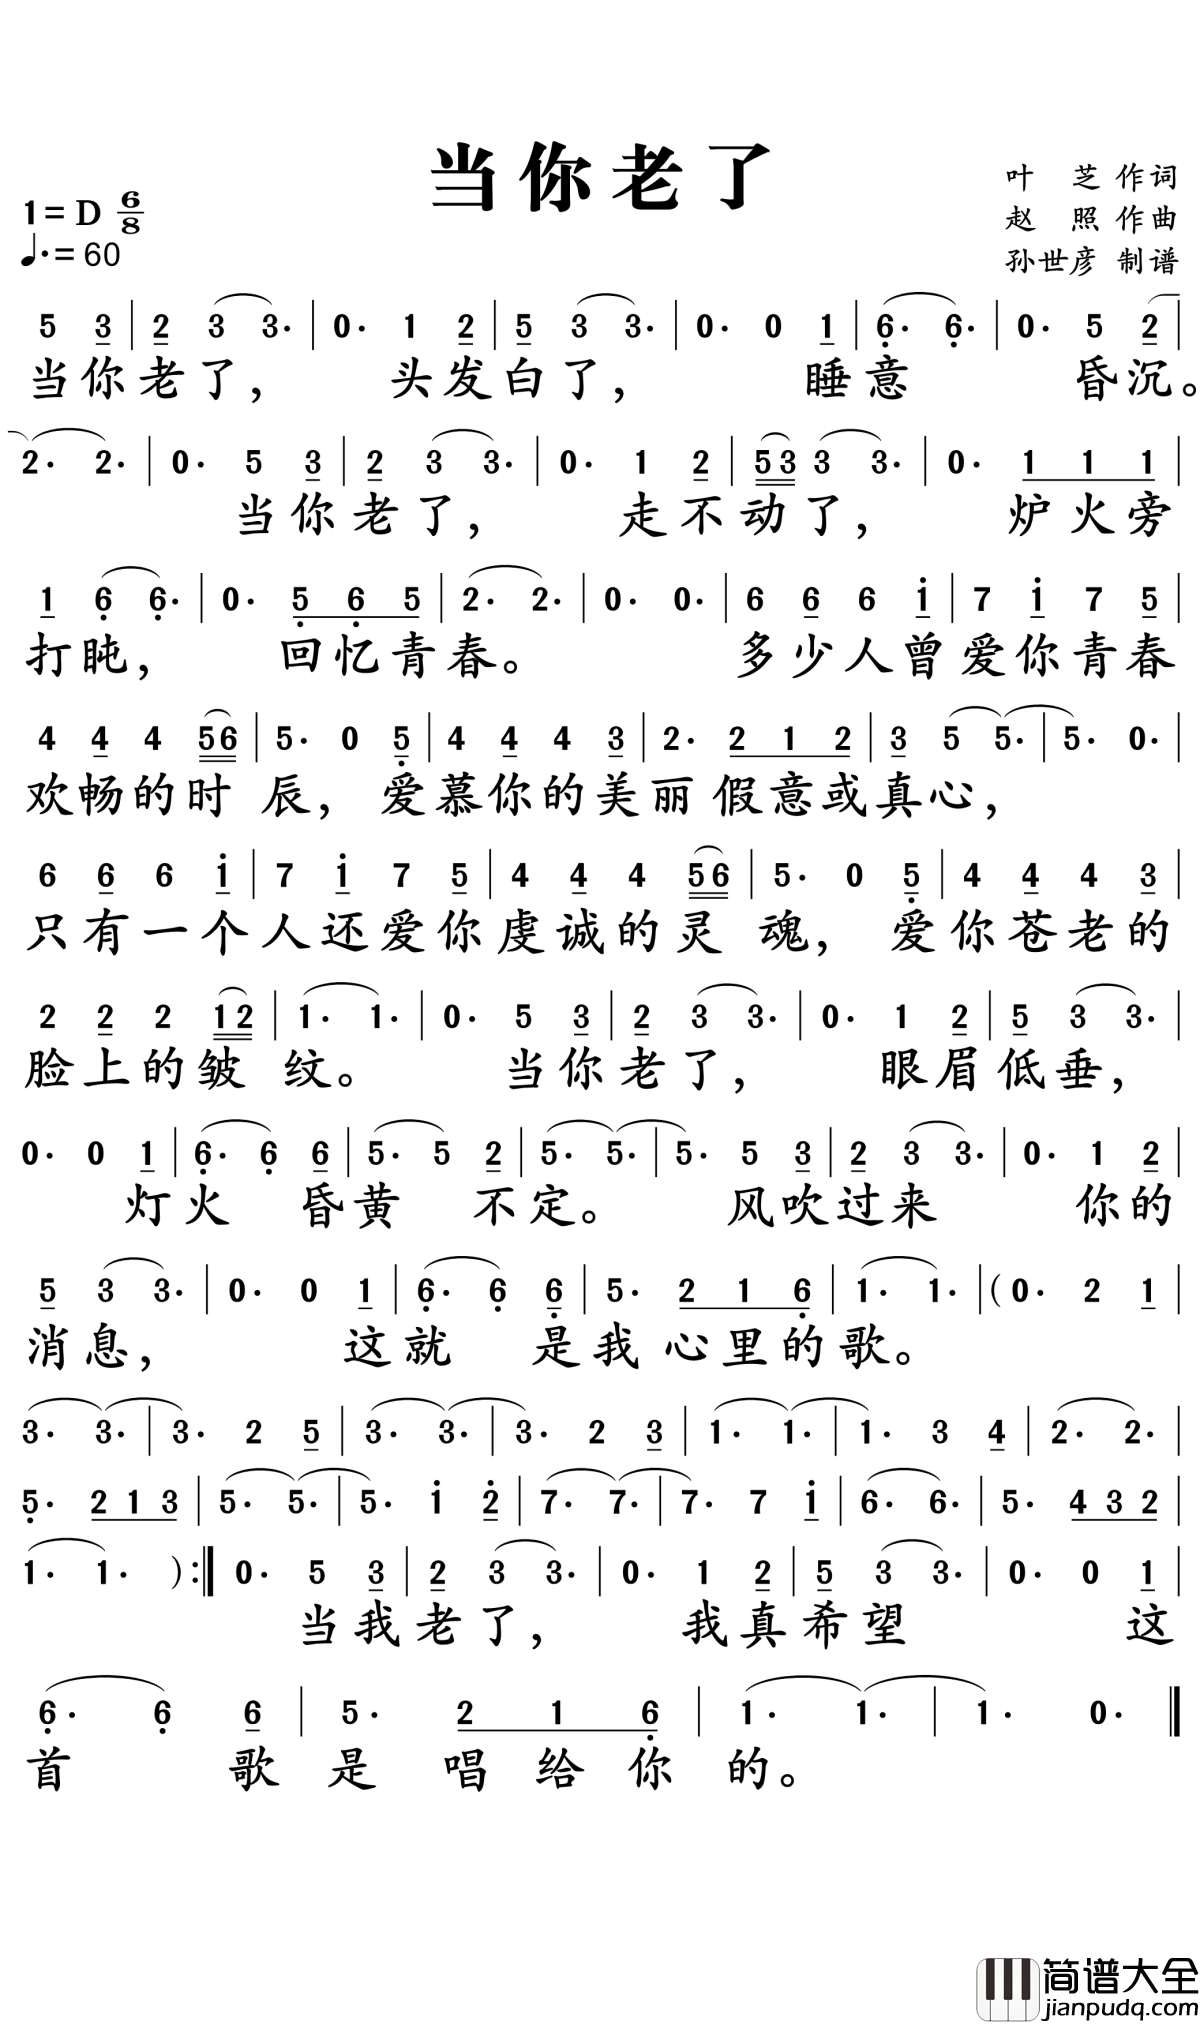 当你老了
1=D 6/8
♩.=60
叶 芝 作词
赵 照 作曲
孙世彦 制谱
5 3 | 2 3 3· | 0· 1 2 | 5 3 3· | 0· 0 1 | 6· 6· | 0· 5 2 |
当你老了, 头发白了, 睡意 昏沉。
2· 2· | 0· 5 3 | 2 3 3· | 0· 1 2 | 53 3 3· | 0· 1 1 1 |
当你老了, 走不动了, 炉火旁
1 6 6· | 0· 5 6 5 | 2· 2· | 0· 0· | 6 6 6 i | 7 i 7 5 |
打盹, 回忆青春。 多少人曾爱你青春
4 4 4 56 | 5· 0 5 | 4 4 4 3 | 2· 2 1 2 | 3 5 5· | 5· 0· |
欢畅的时 辰, 爱慕你的美丽 假意或真心,
6 6 6 i | 7 i 7 5 | 4 4 4 56 | 5· 0 5 | 4 4 4 3 |
只有一个人还爱你虔诚的灵 魂, 爱你苍老的
2 2 2 12 | 1· 1· | 0· 5 3 | 2 3 3· | 0· 1 2 | 5 3 3· |
脸上的皱 纹。 当你老了, 眼眉低垂,
0· 0 1 | 6· 6 6 | 5· 5 2 | 5· 5· | 5· 5 3 | 2 3 3· | 0· 1 2 |
灯火 昏黄 不定。 风吹过来 你的
5 3 3· | 0· 0 1 | 6· 6 6 | 5· 2 1 6 | 1· 1· | (0· 2 1 |
消息, 这就 是我 心里的歌。
3· 3· | 3· 2 5 | 3· 3· | 3· 2 3 | 1· 1· | 1· 3 4 | 2· 2· |
5· 2 1 3 | 5· 5· | 5· i 2 | 7· 7· | 7· 7 i | 6· 6· | 5· 4 3 2 |
1· 1· ) :‖ 0· 5 3 | 2 3 3· | 0· 1 2 | 5 3 3· | 0· 0 1 |
当我老了, 我真希望 这
6· 6 6 | 5· 2 1 6 | 1· 1· | 1· 0· ‖
首 歌是 唱给你 的。
简谱大全
jianpudq.com